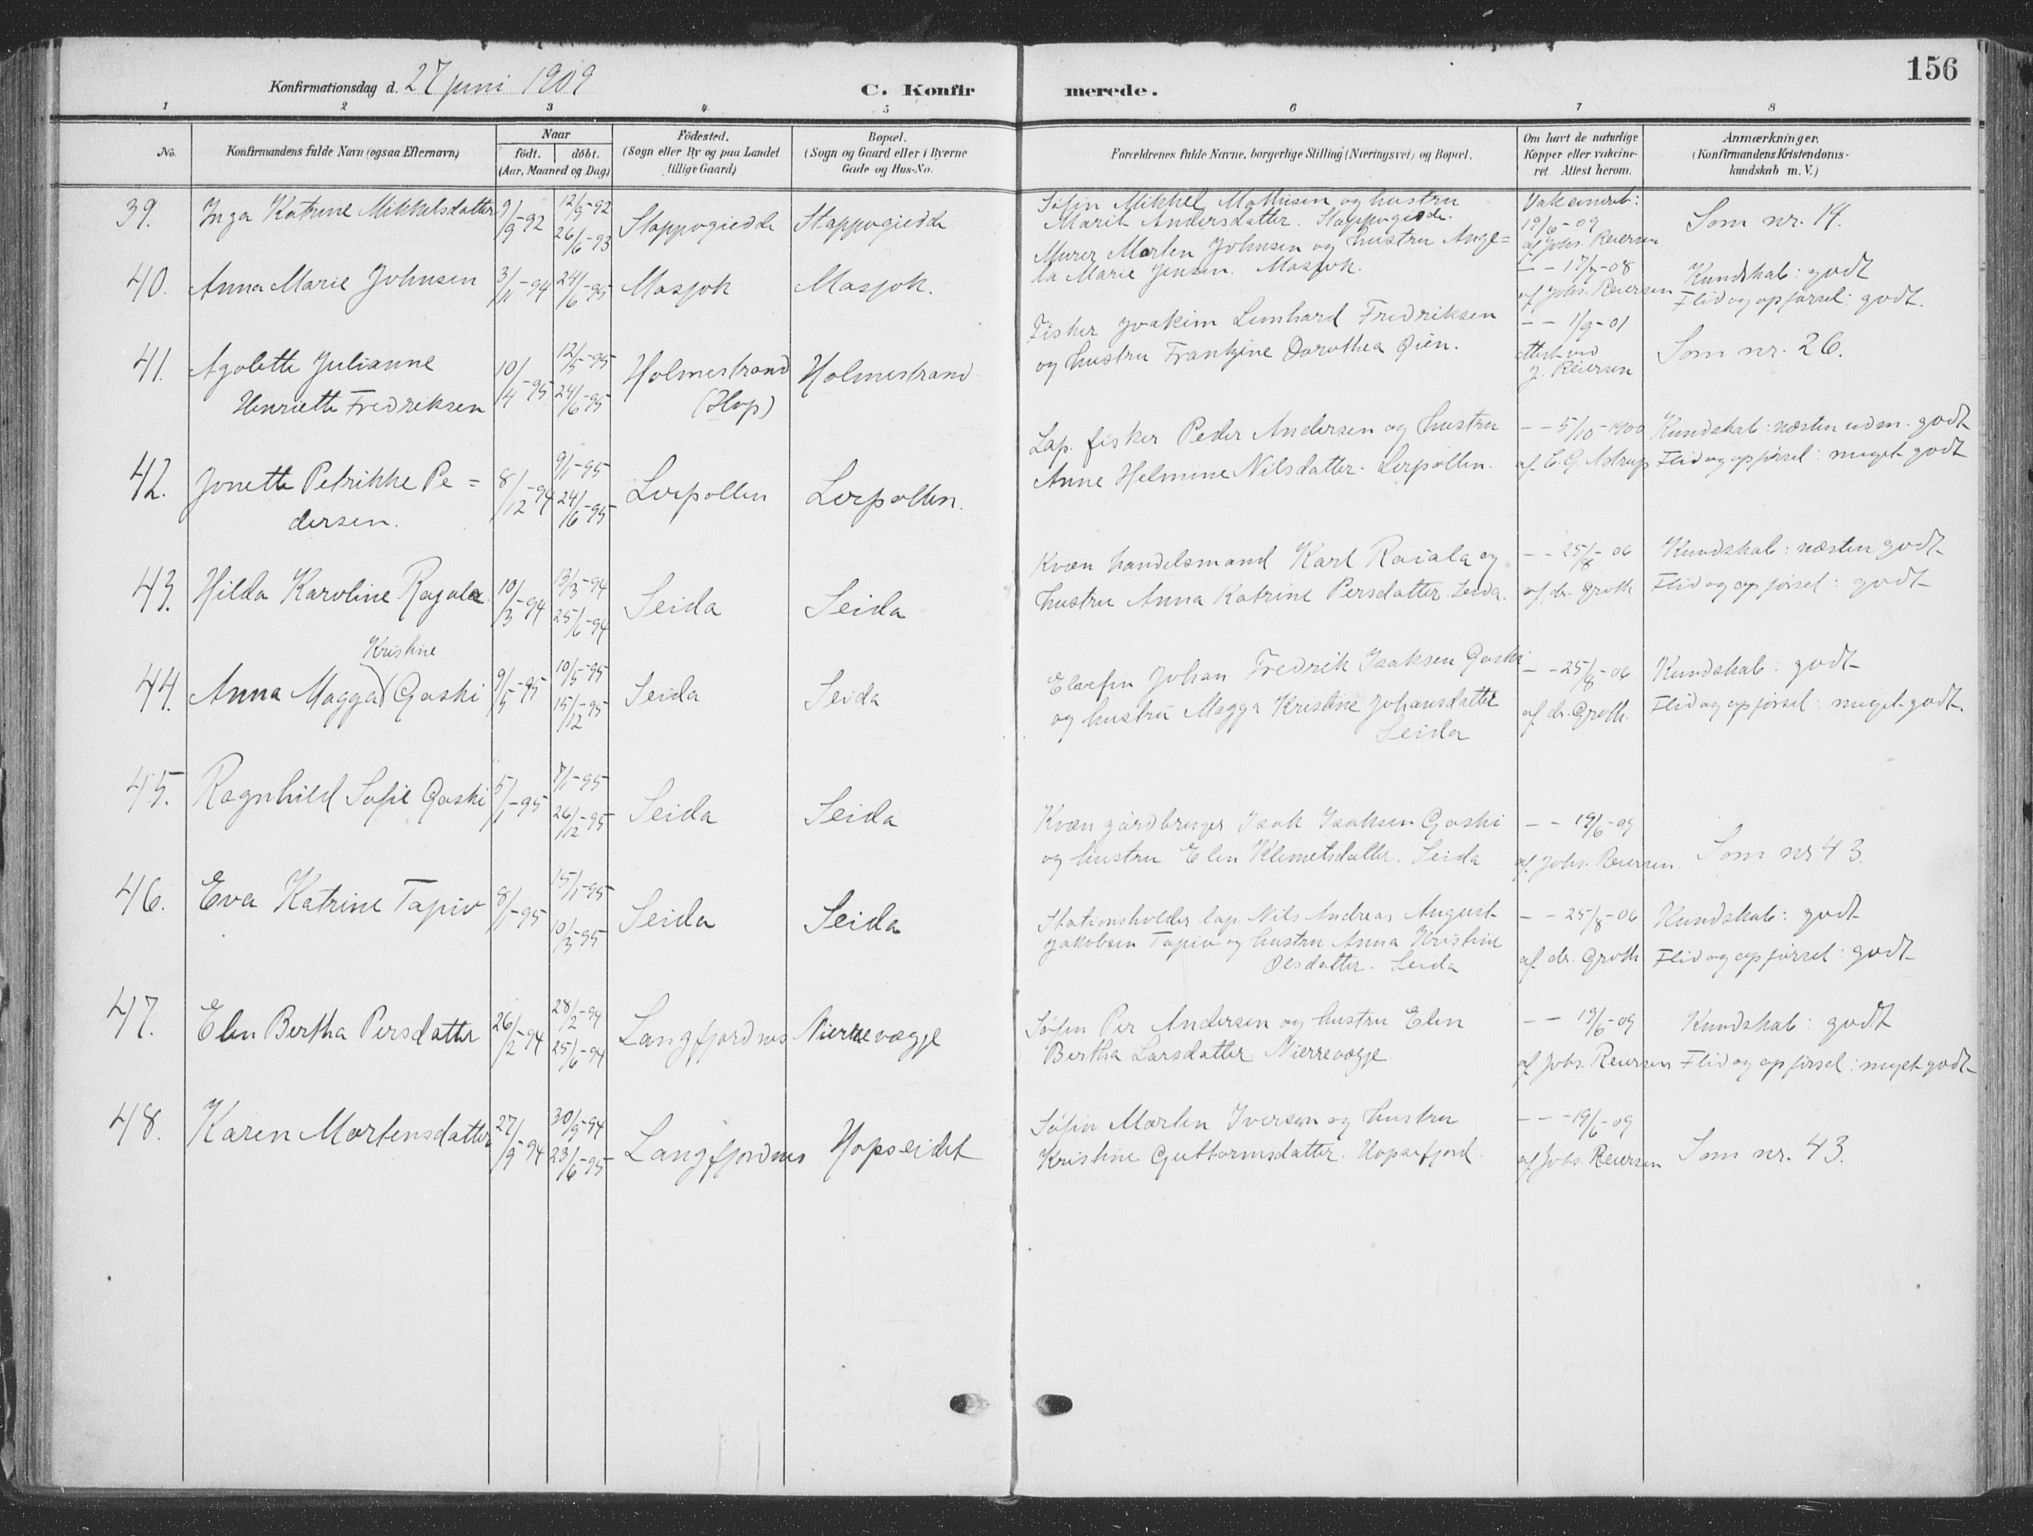 156
Konfirmationsdag d. 27 juni 1909
C. Konfirmerede.
1 2 3 4 5 6 7 8
No.
Konfirmandens fulde Navn (ogsaa Efternavn)
Naar
født. døbt.
(Aar, Maaned og Dag)
Fødested.
(Sogn eller By og paa Landet
tillige Gaard)
Bopæl.
(Sogn og Gaard eller i Byerne
Gade og Hus-No.
Forældrenes fulde Navne, borgerlige Stilling (Næringsvei) og Bopæl.
Om havt de naturlige
Kopper eller vakcine-
ret. Attest herom.
Anmærkninger,
(Konfirmandens Kristendoms-
kundskab m. V.)
39. Inga Katrine Mikkelsdatter 9/9-92 12/9-92 26/6-93 Stappogiedde Stappogiedde
Søfin Mikkel Mathisen og hustru
Marit Andersdatter. Stappogiedde.
Vakcineret:
19/6-09
af Johs. Reiersen
Som nr. 19.
40. Anna Marie Johnsen 3/11-94 24/6-95 Masjok Masjok.
Murer Morten Johnsen og hustru Ange=
la Marie Jensen. Masjok.
- - 17/7-08
af Johs. Reiersen
Kundskab: godt
Flid og opførsel: godt.
41. Agolette Julianne
Henriette Fredriksen
10/4-95 12/5-95 24/6-95 Holmestrand
(Hop)
Holmestrand
Fisker Joakim Lenhard Fredriksen
og hustru Frantzine Dorothea Øien.
- - 1/9-01
attest ved
J. Reiersen
Som nr. 26.
42. Jonette Petrikke Pe=
dersen.
8/12-94 9/1-95 24/6-95 Lerpollen Lerpollen.
Lap. fisker Peder Andersen og hustru
Anne Helmine Nilsdatter. Lerpollen.
- - 5/10-1900
af C. G. Astrup
Kundskab: næsten udm. godt
Flid og opførsel: meget godt
43. Hilda Karoline Rajala 10/3-94 13/3-94 25/6-94 Seida Seida
Kvæn handelsmand Karl Raiala og
hustru Anna Katrine Persdatter. Seida.
- - 25/8-06
af. dr. Groth
Kundskab: næsten godt
Flid og opførsel: godt
Kristine
44. Anna Magga Gaski 9/5-95 10/5-95 15/12-95 Seida Seida
Elvefin Johan Fredrik Isaksen Gaski
og hustru Magga Kristine Johansdatter
Seida
- - 25/8-06
af. dr. Groth.
Kundskab: godt
Flid og opførsel: meget godt.
45. Ragnhild Sofie Gaski 5/1-95 7/1-95 26/12-95 Seida Seida
Kvæn gårdbruger Isak Isaksen Gaski
og hustru Elen Klemetsdatter. Seida
- - 19/6-09
af. Johs. Reiersen.
Som nr 43.
46. Eva Katrine Tapio 8/1-95 15/1-95 10/3-95 Seida Seida
Stationsholder lap. Nils Andreas August
Jakobsen Tapio og hustru Anna Kristine
Olsdatter. Seida
- - 25/8-06
af. dr. Groth
Kundskab: godt
Flid og opførsel: godt
47. Elen Bertha Persdatter 26/2-94 28/2-94 25/6-94 Langfjordnes Nierrevagge
Søfin Per Andersen og hustru Elen
Bertha Larsdatter Nierrevagge
- - 19/6-09
af. Johs. Reiersen
Kundskab: godt
Flid og opførsel: meget godt
48. Karen Mortensdatter 27/9-94 30/9-94 23/6-95 Langfjordnes Hopseidet
Søfin Morten Iversen og hustru
Kristine Guttormsdatter. Hopsefjord
- - - 19/6-09
af Johs. Reiersen
Som nr. 43.